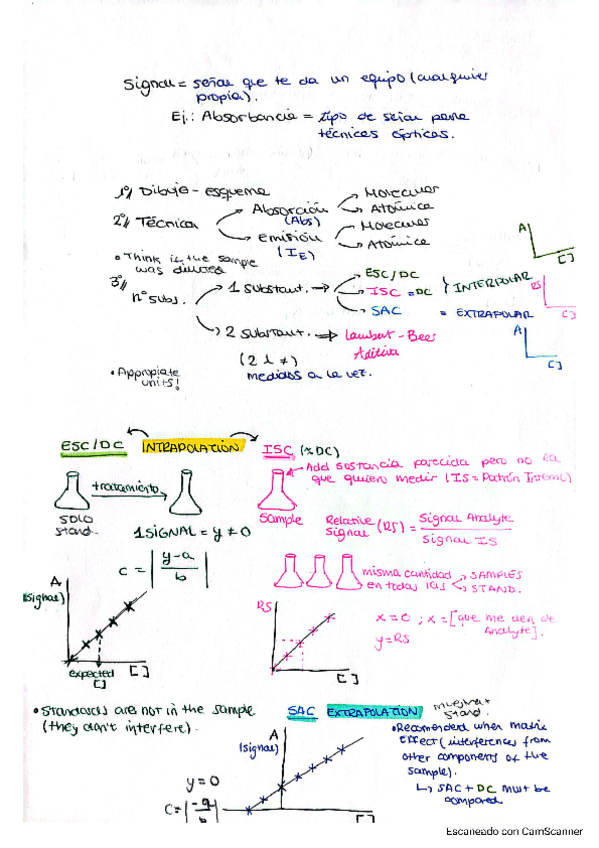 Signal = señal que te da un equipo (cualquier
propia).
Ej.: Absorbancia = tipo de señal para
técnicas ópticas.
1º// Dibujo - esquema
2º// Técnica
Absorción
(Abs)
Molecular
Atómica
emisión
(IE)
Molecular
Atómica
• Think if the sample
was diluted
3º//
nº subs.
1 substant.
ESC/DC
ISC = DC
INTERPOLAR
SAC = EXTRAPOLAR
2 substant.
Lambert-Beer
Aditiva
(2 λ ≠)
medidos a la vez.
• Appropiate
units!
A
[ ]
RS
[ ]
A
[ ]
ESC/DC
INTRAPOLATION
ISC (≈DC)
+tratamiento
SOLO
stand.
1 SIGNAL = y ≠ 0
C = | y-a / b |
Add sustancia parecida pero no la
que quiero medir (IS = Patrón Interno)
Sample
Relative
Signal (RS) = Signal Analyte / Signal IS
misma cantidad
en todas las
SAMPLES
STAND.
A
(Signal)
expected
[ ]
[ ]
RS
[ ]
x=0 ; x=[que me den de
Analyte].
y=RS
• Standards are not in the sample
(they don't interfere).
SAC EXTRAPOLATION
muestra+
stand.
A
(signal)
y=0
C=| -a / b |
[ ]
• Recomended when matrix
Effect (interferences from
other components of the
sample).
↳ SAC + DC must be
compared
Escaneado con CamScanner